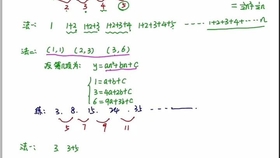 2 3 4 5
法一: 1 1+2 1+2+3 1+2+3+4 1+2+3+4+5 ······ 1+2+3+4+······n
法二: (1,1) (2,3) (3,6)
y=an²+bn+c
1=a+b+c
3=4a+2b+c
6=9a+3b+c
练: 3. 8. 15. 24. 35 ······
5 7 9 11
法一: 3 3+5